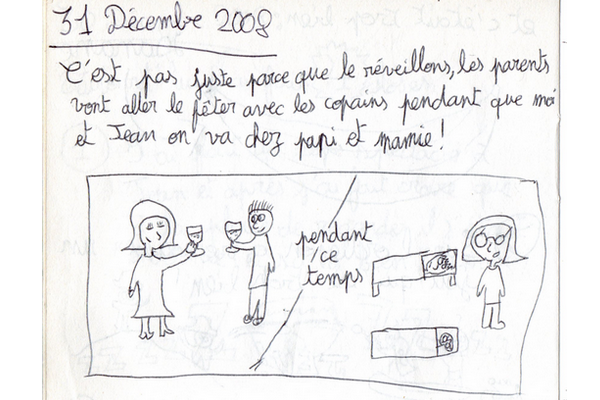 31 Décembre 2008
C'est pas juste parce que le réveillons, les parents
vont aller le fêter avec les copains pendant que moi
et Jean on va chez papi et mamie !
pendant
ce
temps